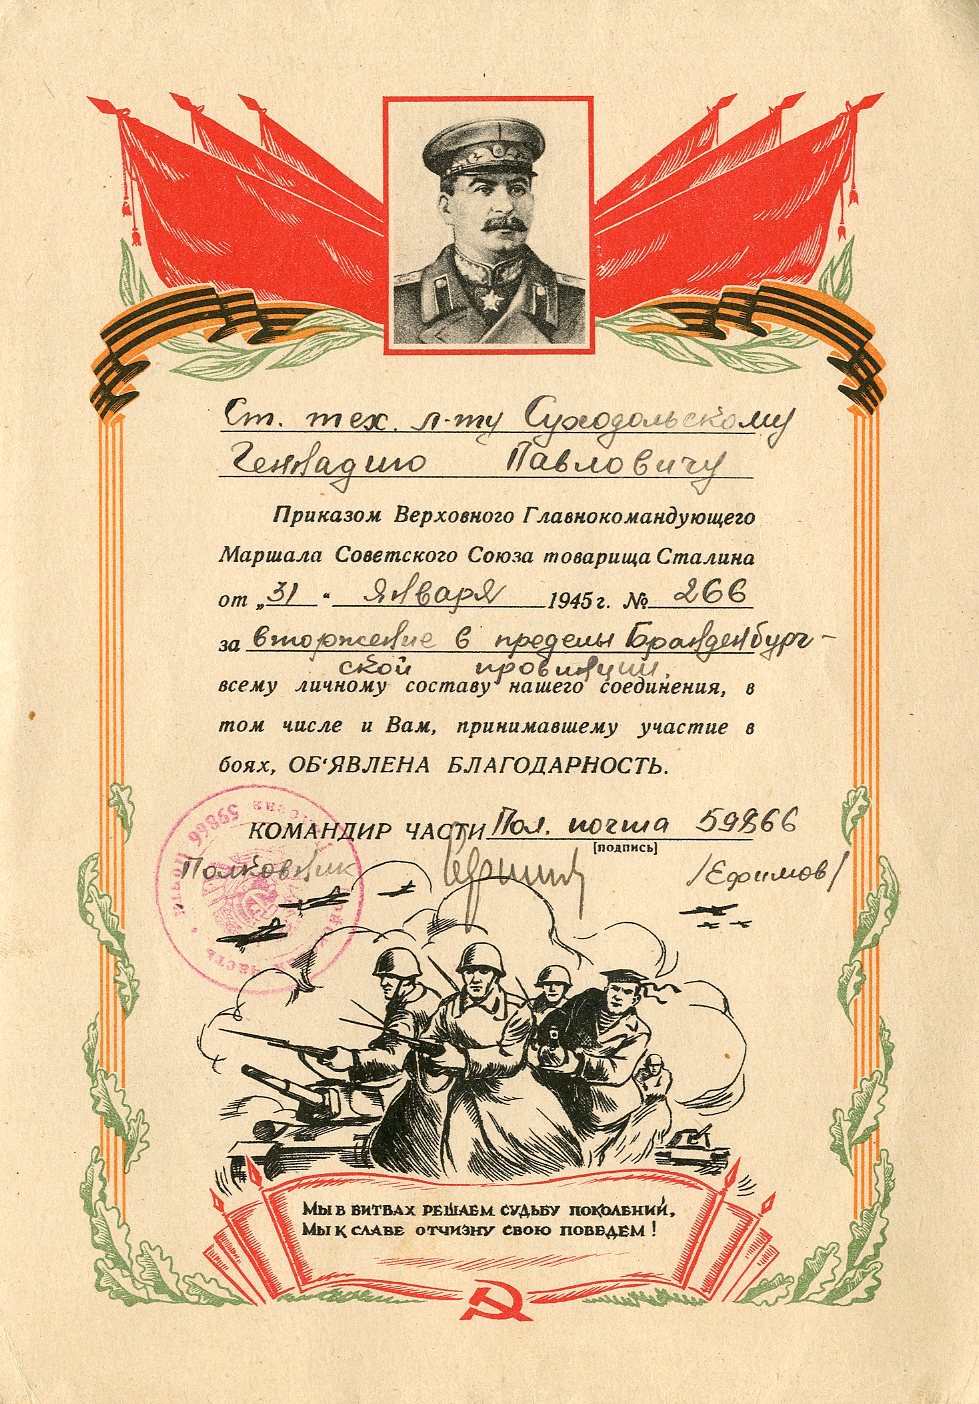 Ст. тех. л-ту Суходольскому
Геннадию Павловичу
Приказом Верховного Главнокомандующего
Маршала Советского Союза товарища Сталина
от „31" января 1945 г. № 266
за вторжение в пределы Бранденбург-
ской провинции,
всему личному составу нашего соединения, в
том числе и Вам, принимавшему участие в
боях, ОБ'ЯВЛЕНА БЛАГОДАРНОСТЬ.
КОМАНДИР ЧАСТИ Пол. почта 59866
[подпись]
Полковник /Ефимов/
часть • Полевая почта 59866
МЫ В БИТВАХ РЕШАЕМ СУДЬБУ ПОКОЛЕНИЙ,
МЫ К СЛАВЕ ОТЧИЗНУ СВОЮ ПОВЕДЕМ!